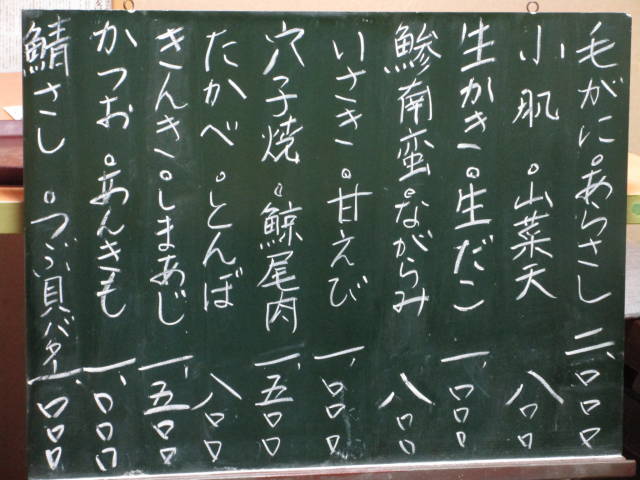 毛がに。あらさし 二、〇〇〇
小肌。山菜天 八〇〇
生かき。生だこ 一、〇〇〇
鯵南蛮。ながらみ 八〇〇
いさき。甘えび 一、〇〇〇
穴子焼。鯨尾肉 一、五〇〇
たかべ。とんぼ 八〇〇
きんき。しまあじ 一、五〇〇
かつお。あんきも 一、〇〇〇
鯖さし。つぶ貝バター 一、〇〇〇